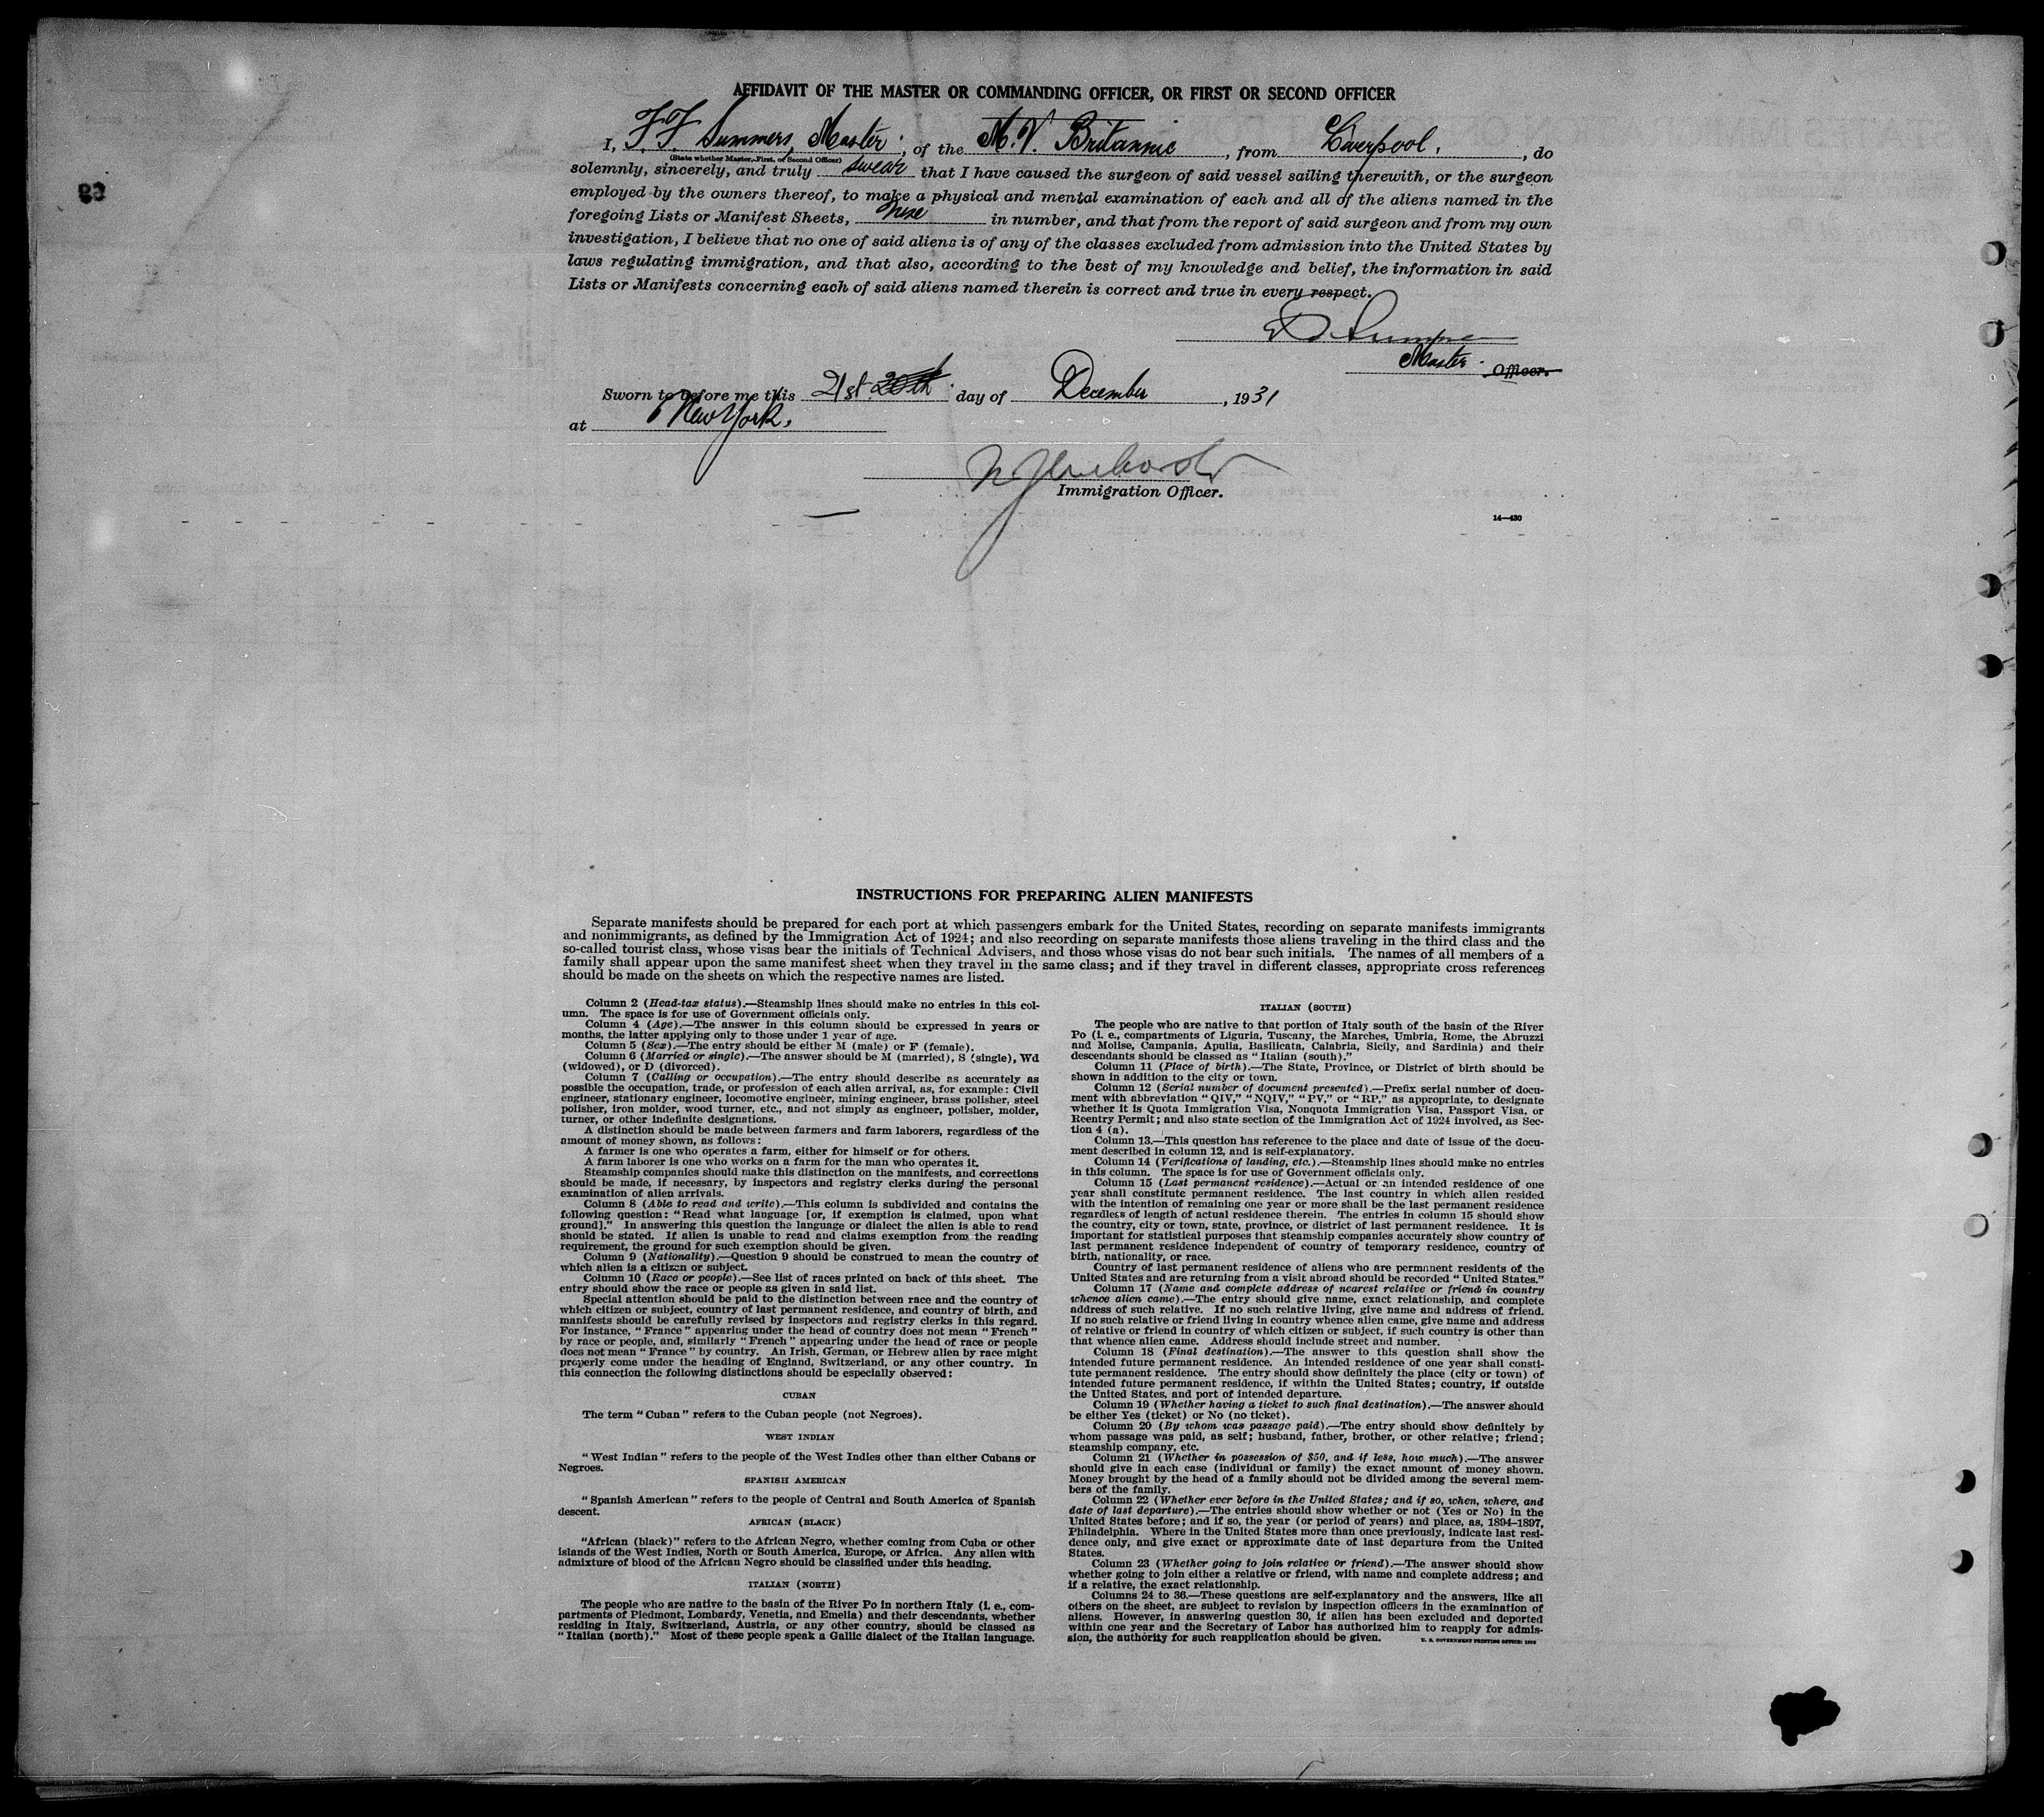 AFFIDAVIT OF THE MASTER OR COMMANDING OFFICER, OR FIRST OR SECOND OFFICER
I, F. F. Summers, Master, of the M.V. Britannic, from Liverpool, do
(State whether Master, First, or Second Officer)
solemnly, sincerely, and truly swear that I have caused the surgeon of said vessel sailing therewith, or the surgeon
employed by the owners thereof, to make a physical and mental examination of each and all of the aliens named in the
foregoing Lists or Manifest Sheets, in number, and that from the report of said surgeon and from my own
investigation, I believe that no one of said aliens is of any of the classes excluded from admission into the United States by
laws regulating immigration, and that also, according to the best of my knowledge and belief, the information in said
Lists or Manifests concerning each of said aliens named therein is correct and true in every respect.
Master Officer.
Sworn to before me this 21st 20th day of December, 1931
at New York.
Immigration Officer.
14—430
INSTRUCTIONS FOR PREPARING ALIEN MANIFESTS
Separate manifests should be prepared for each port at which passengers embark for the United States, recording on separate manifests immigrants
and nonimmigrants, as defined by the Immigration Act of 1924; and also recording on separate manifests those aliens traveling in the third class and the
so-called tourist class, whose visas bear the initials of Technical Advisers, and those whose visas do not bear such initials. The names of all members of a
family shall appear upon the same manifest sheet when they travel in the same class; and if they travel in different classes, appropriate cross references
should be made on the sheets on which the respective names are listed.
Column 2 (Head-tax status).—Steamship lines should make no entries in this col-
umn. The space is for use of Government officials only.
Column 4 (Age).—The answer in this column should be expressed in years or
months, the latter applying only to those under 1 year of age.
Column 5 (Sex).—The entry should be either M (male) or F (female).
Column 6 (Married or single).—The answer should be M (married), S (single), Wd
(widowed), or D (divorced).
Column 7 (Calling or occupation).—The entry should describe as accurately as
possible the occupation, trade, or profession of each alien arrival, as, for example: Civil
engineer, stationary engineer, locomotive engineer, mining engineer, brass polisher, steel
polisher, iron molder, wood turner, etc., and not simply as engineer, polisher, molder,
turner, or other indefinite designations.
A distinction should be made between farmers and farm laborers, regardless of the
amount of money shown, as follows:
A farmer is one who operates a farm, either for himself or for others.
A farm laborer is one who works on a farm for the man who operates it.
Steamship companies should make this distinction on the manifests, and corrections
should be made, if necessary, by inspectors and registry clerks during the personal
examination of alien arrivals.
Column 8 (Able to read and write).—This column is subdivided and contains the
following question: "Read what language [or, if exemption is claimed, upon what
ground]." In answering this question the language or dialect the alien is able to read
should be stated. If alien is unable to read and claims exemption from the reading
requirement, the ground for such exemption should be given.
Column 9 (Nationality).—Question 9 should be construed to mean the country of
which alien is a citizen or subject.
Column 10 (Race or people).—See list of races printed on back of this sheet. The
entry should show the race or people as given in said list.
Special attention should be paid to the distinction between race and the country of
which citizen or subject, country of last permanent residence, and country of birth, and
manifests should be carefully revised by inspectors and registry clerks in this regard.
For instance, "France" appearing under the head of country does not mean "French"
by race or people, and, similarly "French" appearing under the head of race or people
does not mean "France" by country. An Irish, German, or Hebrew alien by race might
properly come under the heading of England, Switzerland, or any other country. In
this connection the following distinctions should be especially observed:
CUBAN
The term "Cuban" refers to the Cuban people (not Negroes).
WEST INDIAN
"West Indian" refers to the people of the West Indies other than either Cubans or
Negroes.
SPANISH AMERICAN
"Spanish American" refers to the people of Central and South America of Spanish
descent.
AFRICAN (BLACK)
"African (black)" refers to the African Negro, whether coming from Cuba or other
islands of the West Indies, North or South America, Europe, or Africa. Any alien with
admixture of blood of the African Negro should be classified under this heading.
ITALIAN (NORTH)
The people who are native to the basin of the River Po in northern Italy (i. e., com-
partments of Piedmont, Lombardy, Venetia, and Emelia) and their descendants, whether
residing in Italy, Switzerland, Austria, or any other country, should be classed as
"Italian (north)." Most of these people speak a Gallic dialect of the Italian language.
ITALIAN (SOUTH)
The people who are native to that portion of Italy south of the basin of the River
Po (i. e., compartments of Liguria, Tuscany, the Marches, Umbria, Rome, the Abruzzi
and Molise, Campania, Apulia, Basilicata, Calabria, Sicily, and Sardinia) and their
descendants should be classed as "Italian (south)."
Column 11 (Place of birth).—The State, Province, or District of birth should be
shown in addition to the city or town.
Column 12 (Serial number of document presented).—Prefix serial number of docu-
ment with abbreviation "QIV," "NQIV," "PV," or "RP," as appropriate, to designate
whether it is Quota Immigration Visa, Nonquota Immigration Visa, Passport Visa, or
Reentry Permit; and also state section of the Immigration Act of 1924 involved, as Sec-
tion 4 (a).
Column 13.—This question has reference to the place and date of issue of the docu-
ment described in column 12, and is self-explanatory.
Column 14 (Verifications of landing, etc.).—Steamship lines should make no entries
in this column. The space is for use of Government officials only.
Column 15 (Last permanent residence).—Actual or an intended residence of one
year shall constitute permanent residence. The last country in which alien resided
with the intention of remaining one year or more shall be the last permanent residence
regardless of length of actual residence therein. The entries in column 15 should show
the country, city or town, state, province, or district of last permanent residence. It is
important for statistical purposes that steamship companies accurately show country of
last permanent residence independent of country of temporary residence, country of
birth, nationality, or race.
Country of last permanent residence of aliens who are permanent residents of the
United States and are returning from a visit abroad should be recorded "United States."
Column 17 (Name and complete address of nearest relative or friend in country
whence alien came).—The entry should give name, exact relationship, and complete
address of such relative. If no such relative living, give name and address of friend.
If no such relative or friend living in country whence alien came, give name and address
of relative or friend in country of which citizen or subject, if such country is other than
that whence alien came. Address should include street and number.
Column 18 (Final destination).—The answer to this question shall show the
intended future permanent residence. An intended residence of one year shall consti-
tute permanent residence. The entry should show definitely the place (city or town) of
intended future permanent residence, if within the United States; country, if outside
the United States, and port of intended departure.
Column 19 (Whether having a ticket to such final destination).—The answer should
be either Yes (ticket) or No (no ticket).
Column 20 (By whom was passage paid).—The entry should show definitely by
whom passage was paid, as self; husband, father, brother, or other relative; friend;
steamship company, etc.
Column 21 (Whether in possession of $50, and if less, how much).—The answer
should give in each case (individual or family) the exact amount of money shown.
Money brought by the head of a family should not be divided among the several mem-
bers of the family.
Column 22 (Whether ever before in the United States; and if so, when, where, and
date of last departure).—The entries should show whether or not (Yes or No) in the
United States before; and if so, the year (or period of years) and place, as, 1894-1897,
Philadelphia. Where in the United States more than once previously, indicate last resi-
dence only, and give exact or approximate date of last departure from the United
States.
Column 23 (Whether going to join relative or friend).—The answer should show
whether going to join either a relative or friend, with name and complete address; and
if a relative, the exact relationship.
Columns 24 to 36.—These questions are self-explanatory and the answers, like all
others on the sheet, are subject to revision by inspection officers in the examination of
aliens. However, in answering question 30, if alien has been excluded and deported
within one year and the Secretary of Labor has authorized him to reapply for admis-
sion, the authority for such reapplication should be given.
U. S. GOVERNMENT PRINTING OFFICE: